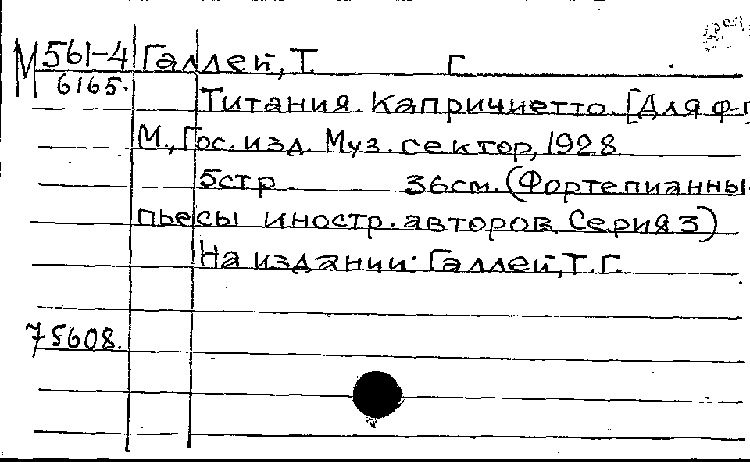 М 561-4 Галлей, Т. Г.
6165.
Титания. Каприччиетто. [Для ф-п
М., Гос. изд. Муз. сектор, 1928
5 стр. 36 см. (Фортепианны
пьесы иностр. авторов. Серия 3)
На издании: Галлей, Т. Г.
75608.